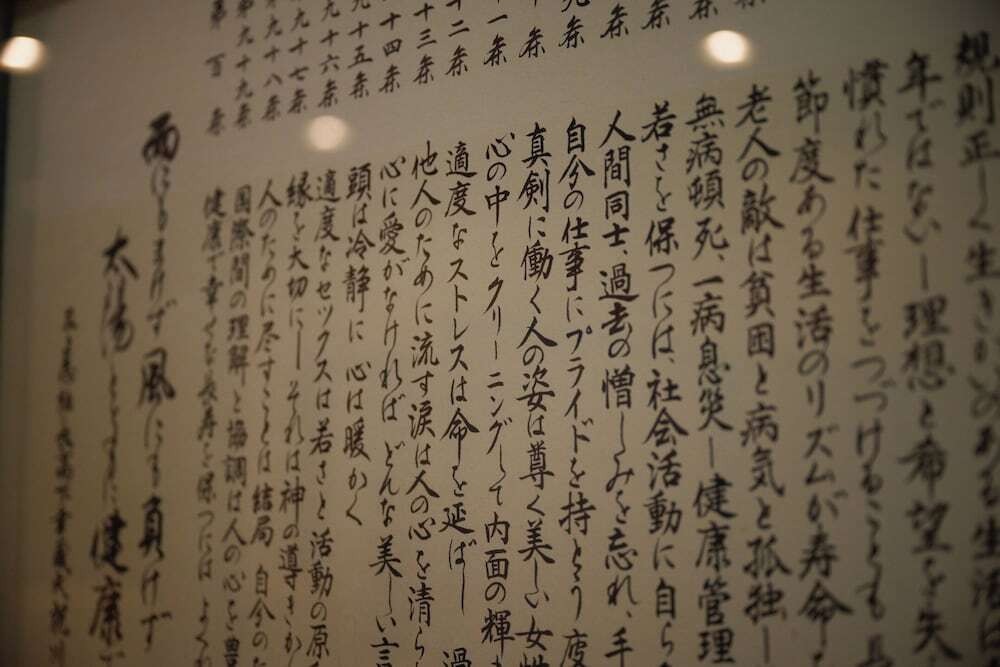 規則正しく生きがいのある生活は
年ではない―理想と希望を失
慣れた仕事をつづけることも長
節度ある生活のリズムが寿命
老人の敵は貧困と病気と孤独―
条 無病頓死、一病息災―健康管理
条 若さを保つには、社会活動に自ら
条 人間同士、過去の憎しみを忘れ、手
条 自分の仕事にプライドを持とう 疲
十条 真剣に働く人の姿は尊く美しい 女性
一条 心の中をクリーニングして内面の輝
十二条 適度なストレスは命を延ばし 過
十三条 他人のために流す涙は人の心を清ら
十四条 心に愛がなければ どんな美しい言
九十五条 頭は冷静に 心は暖かく
九十六条 適度なセックスは若さと活動の原
九十七条 縁を大切に―それは神の導きか
第九十八条 人のために尽すことは結局 自分のた
第九十九条 国際間の理解と協調は人の心を豊
第百条 健康で幸せな長寿を保つには よく
雨にもまけず 風にも負けず
太陽とともに 健康で